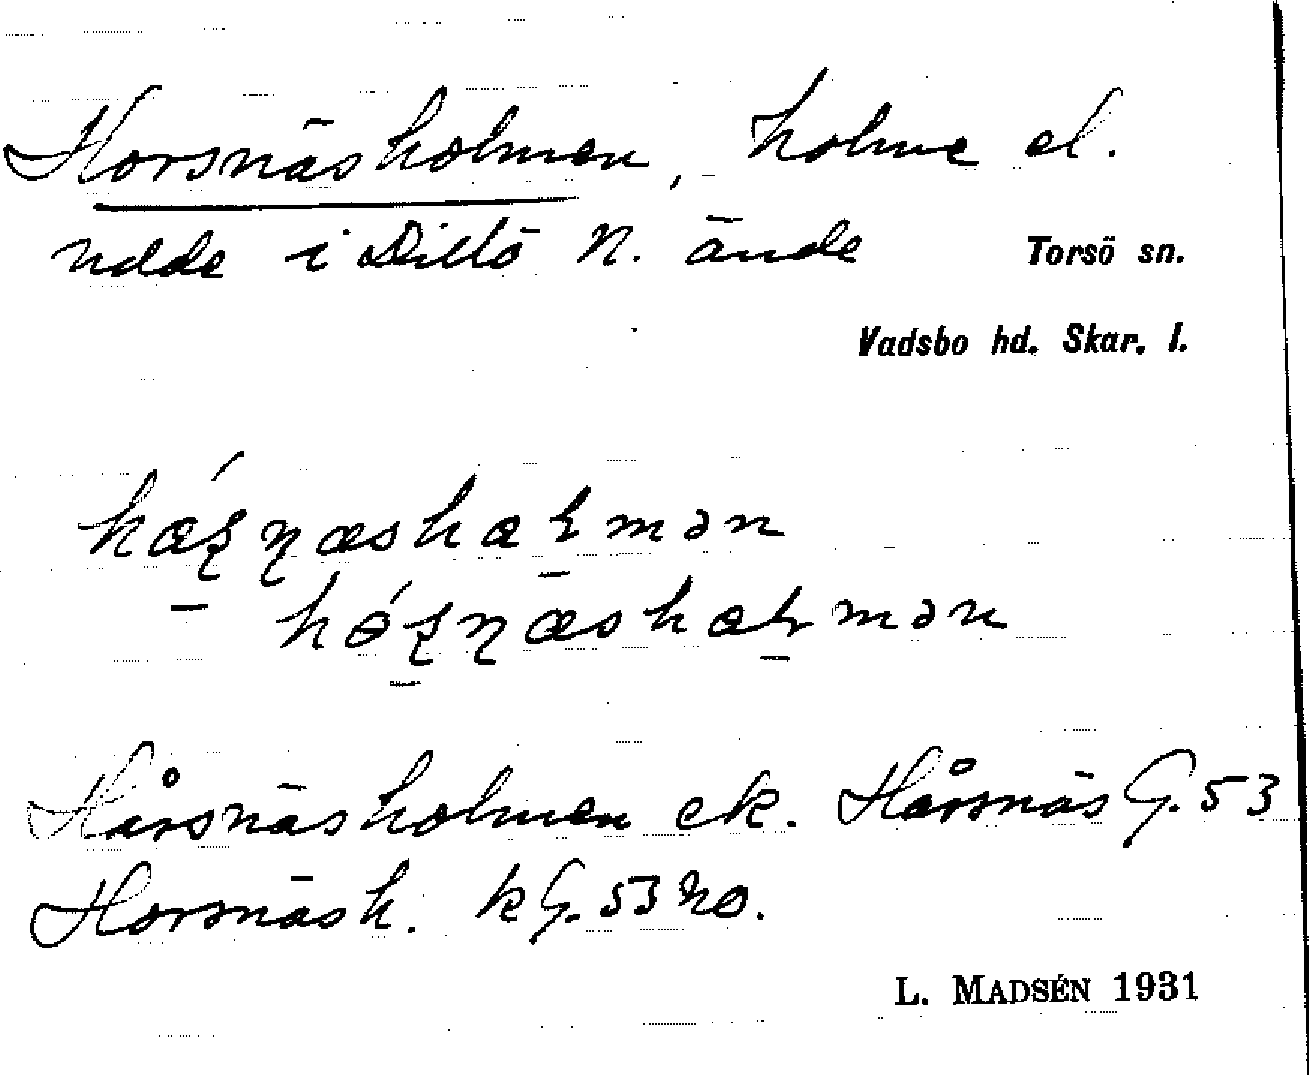 Horsnäsholmen, holme el.
udde i Dillö N. ände
Torsö sn.
Vadsbo hd. Skar. l.
Hårsnäsholmen ek. Hårsnäs G. 53
Horsnäsh. k G. 53 no.
L. MADSÉN 1931